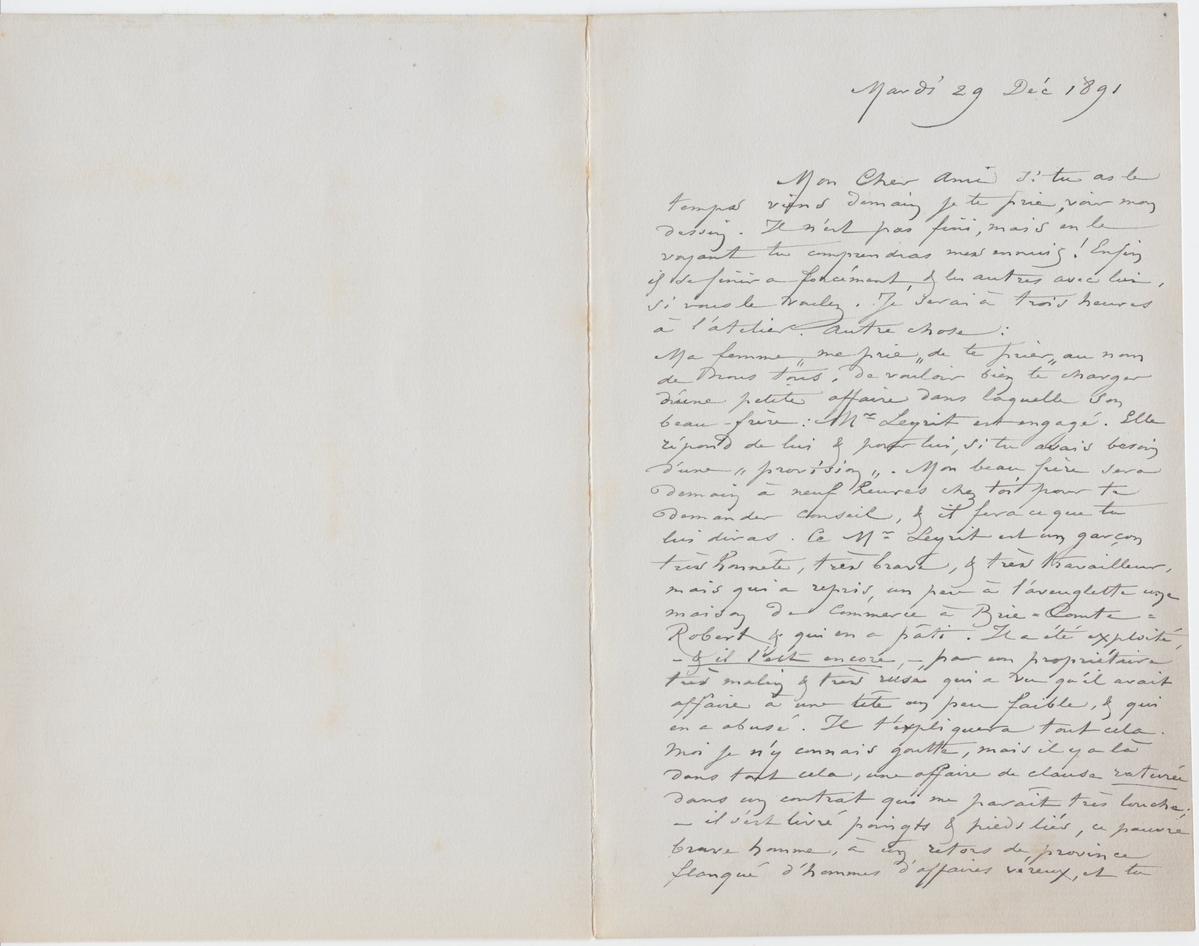 Mardi 29 Déc 1891
Mon Cher Ami si tu as le
temps viens demain je te prie, voir mon
dessin. Il n'est pas fini, mais en le
voyant tu comprendras mes ennuis ! Enfin
il se finira forcément, & les autres avec lui,
si vous le voulez. Je serai à trois heures
à l'atelier. Autre chose :
Ma femme „ me prie „ de te prier „ au nom
de nous tous, de vouloir bien te charger
d'une petite affaire dans laquelle son
beau-frère : Mr Leyrit est engagé. Elle
répond de lui & pour lui, si tu avais besoin
d'une „ provision „. Mon beau frère sera
demain à neuf heures chez toi pour te
demander conseil, & il fera ce que tu
lui diras. Ce Mr Leyrit est un garçon
très honnête, très brave, & très travailleur,
mais qui a repris, un peu à l'aveuglette une
maison de commerce à Brie-Comte-
Robert & qui en a pâti. Il a été exploité,
- & il l'est encore, - par un propriétaire
très malin & très rusé qui a vu qu'il avait
affaire à une tête un peu faible, & qui
en a abusé. Il t'expliquera tout cela.
Moi je n'y connais goutte, mais il y a là
dans tout cela, une affaire de clause raturée
dans un contrat qui me paraît très louche;
- il s'est livré poingts & pieds liés, ce pauvre
brave homme, à un retors de province
flanqué d'hommes d'affaires véreux, et tu